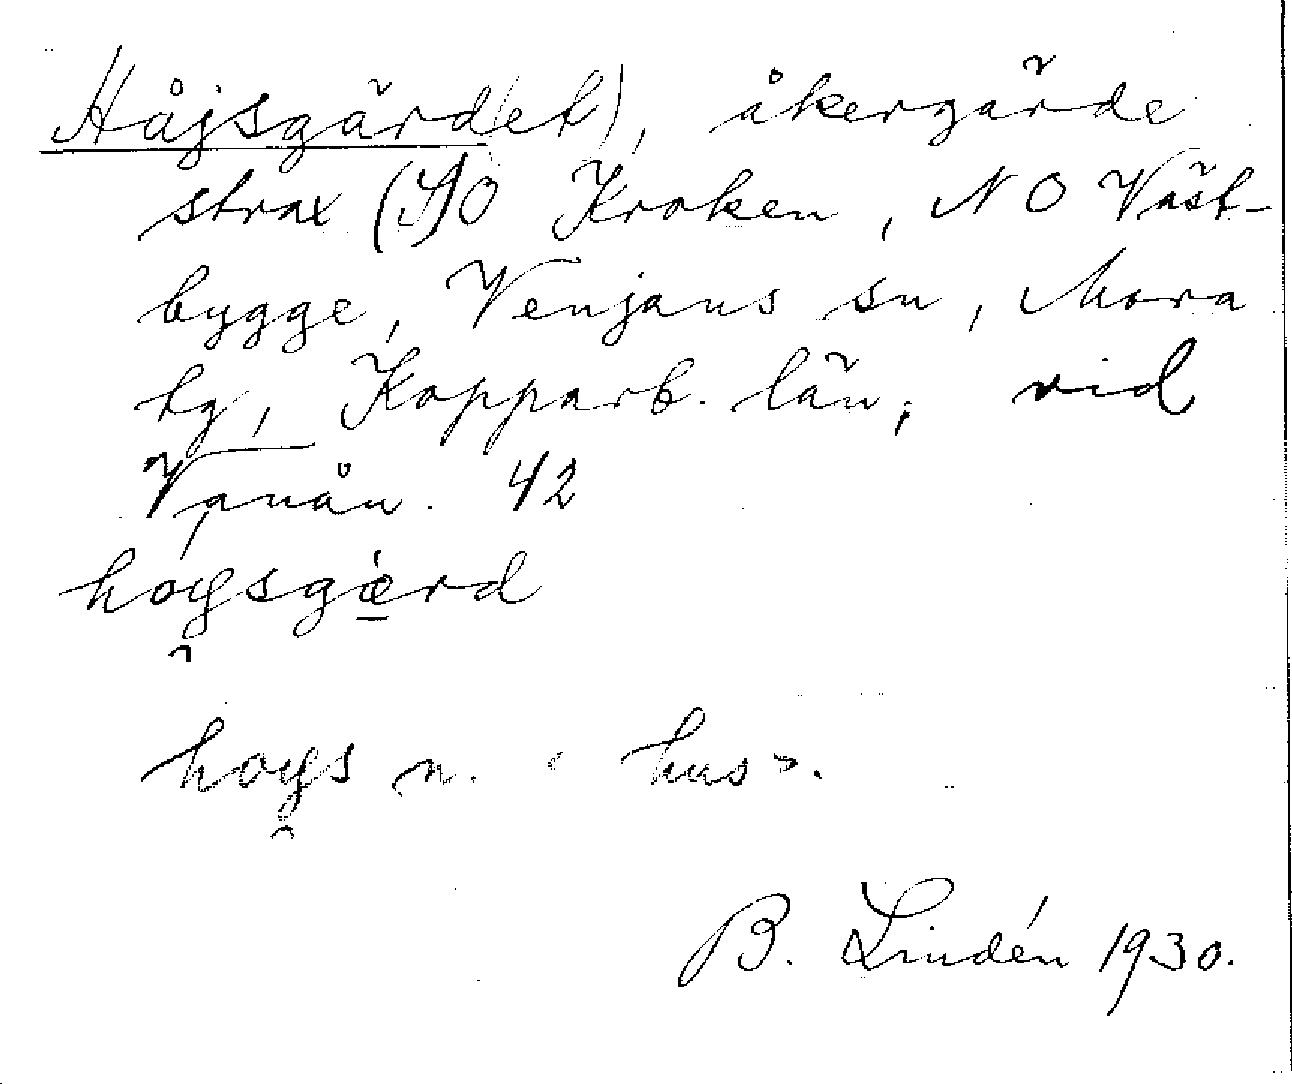 Håjsgärd(et), åkergärde
strax (S)O Kroken, NO Väst-
bygge, Venjans sn, Mora
tg, Kopparb. län; vid
Vanån. 42
hoysgærd
hoys n. "hus".
B. Lindén 1930.